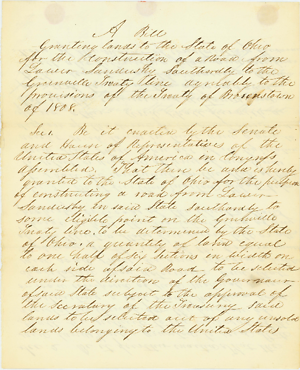 A Bill
Granting lands to the State of Ohio
for the Construction of a Road from
Lower Sandusky Southwardly to the
Greenville Treaty line agreeably to the
provisions of the Treaty of Brownstown
of 1808.
Sec. Be it enacted by the Senate
and House of Representatives of the
United States of America in Congress
assembled, That there be and is hereby
granted to the State of Ohio for the purpose
of constructing a road from Lower
Sandusky in said State southwardly to
some eligible point on the Greenville
Treaty line, to be determined by the State
of Ohio, a quantity of land equal
to one half of six sections in width on
each side of said Road to be selected
under the direction of the Governor
of said State subject to the approval of
the Secretary of the Treasury said
lands to be selected out of any unsold
lands belonging to the United States